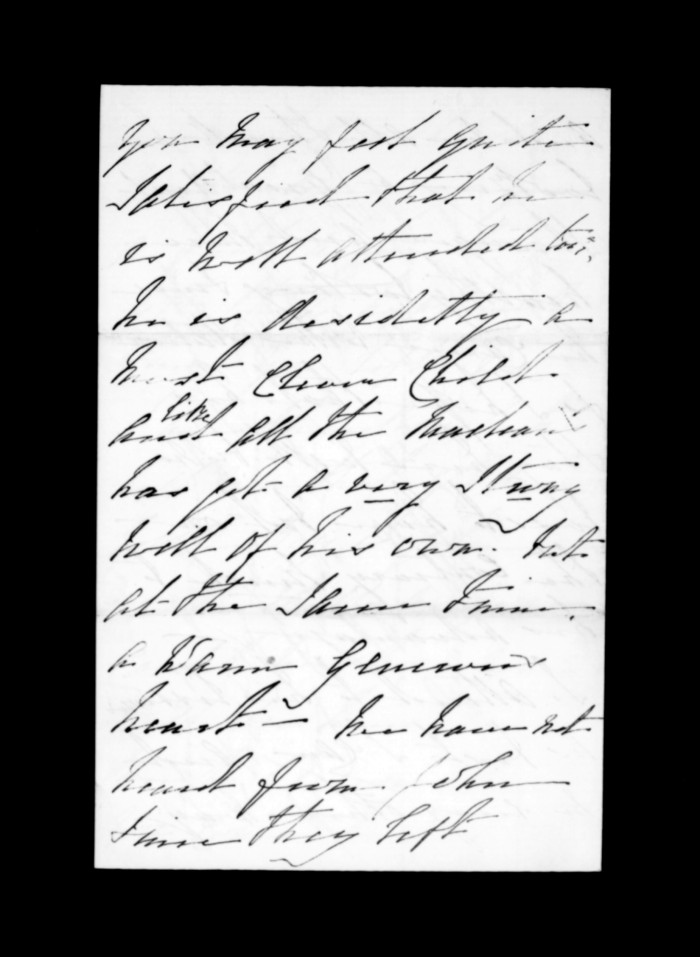 you may feel quite
satisfied that he
is well attended too,
he is desidetly a
most clever Child
and like all the Macleans
has got a very strong
will of his own. but
at the same time
a warm generous
heart – We have not
heard from John
since they left